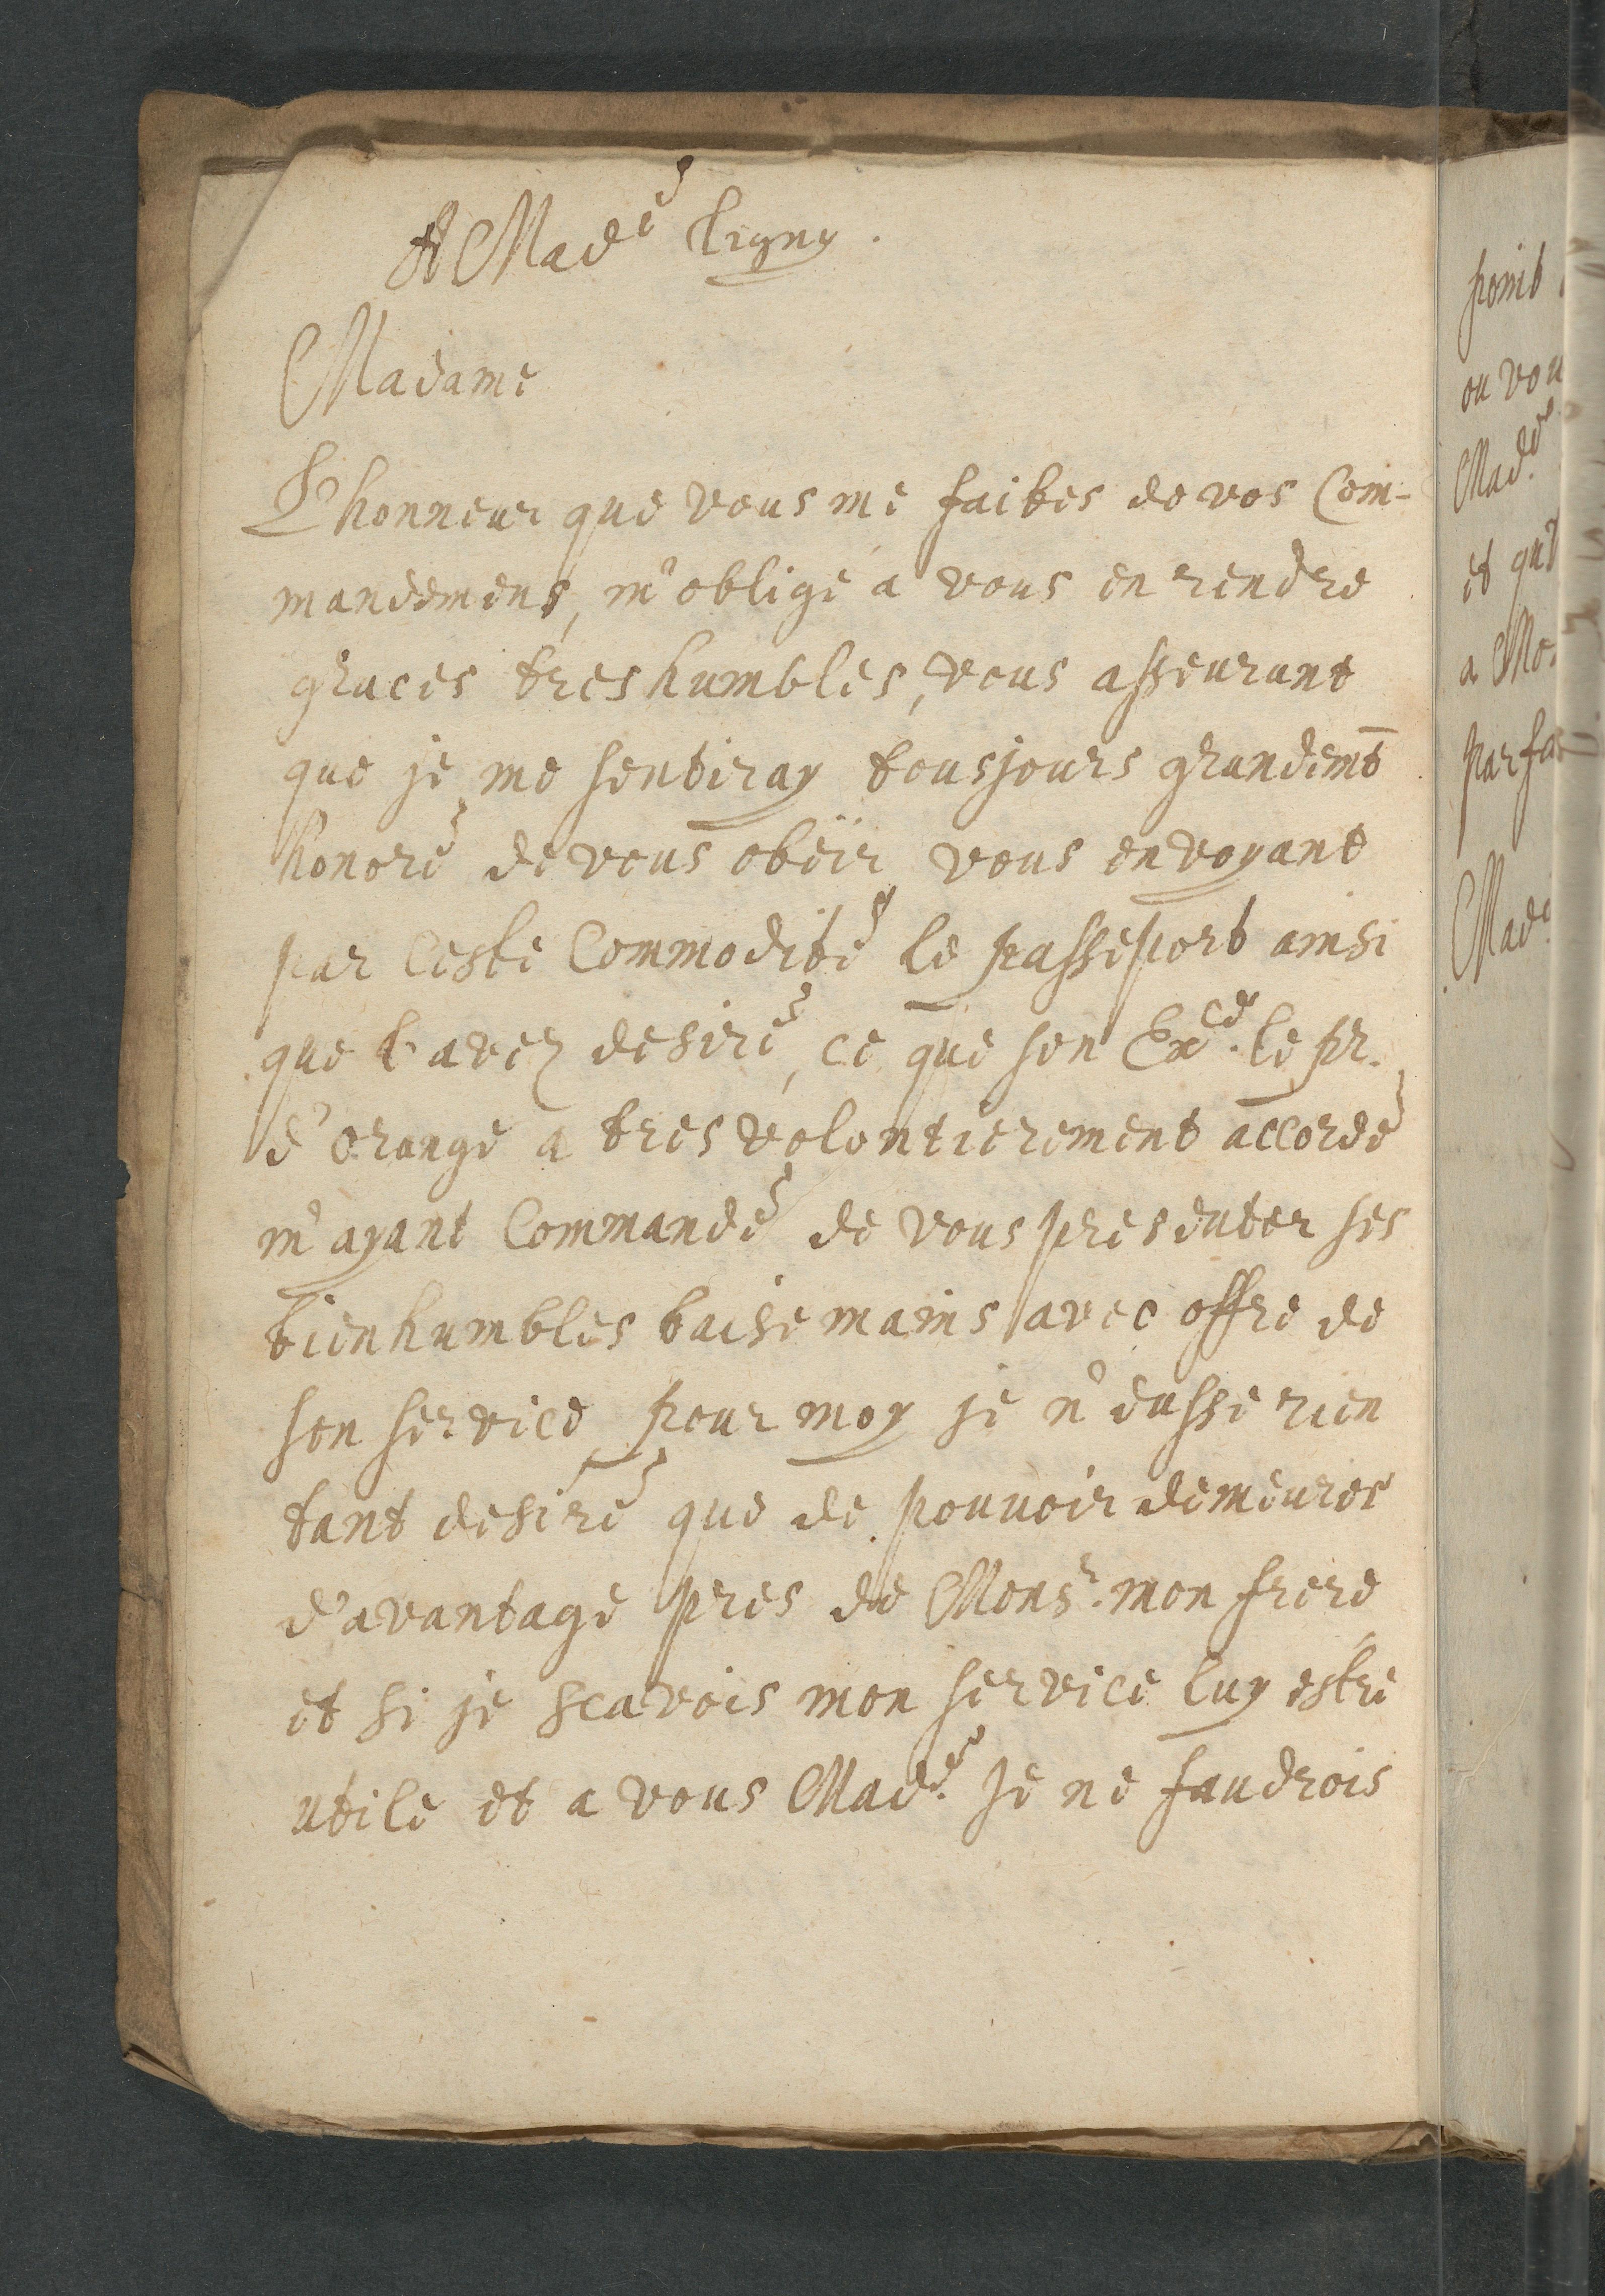 A Made Ligny.
Madame
L'honneur que vous me faites de vos Com-
mandemens, m'oblige a vous en rendre
graces tres humbles, vous asseurant
que je me sentiray tousjours grandemt
honoré de vous obëir vous envoyant
par ceste Commodité le passeport ainsi
que l'avez desiré, ce que son Exce. le pr.
d'Orange a tres volontierement accordé
m'ayant Commandé de vous presenter ses
bienhumbles baisemains avec offre de
son service, pour moy je n'eusse rien
tant desiré que de pouvoir demeurer
d'avantage pres de Monsr. mon frere
et si je scavois mon service luy estre
utile et a vous Made. Je ne faudrois
point
ou vou
Made.
et qu'i
a Mo
par fa
Made